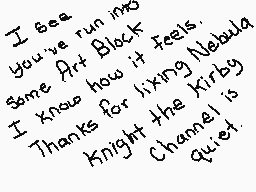 I see
you've run into
some Art Block
I know how it feels.
Thanks for liking Nebula
Knight the Kirby
Channel is
quiet.